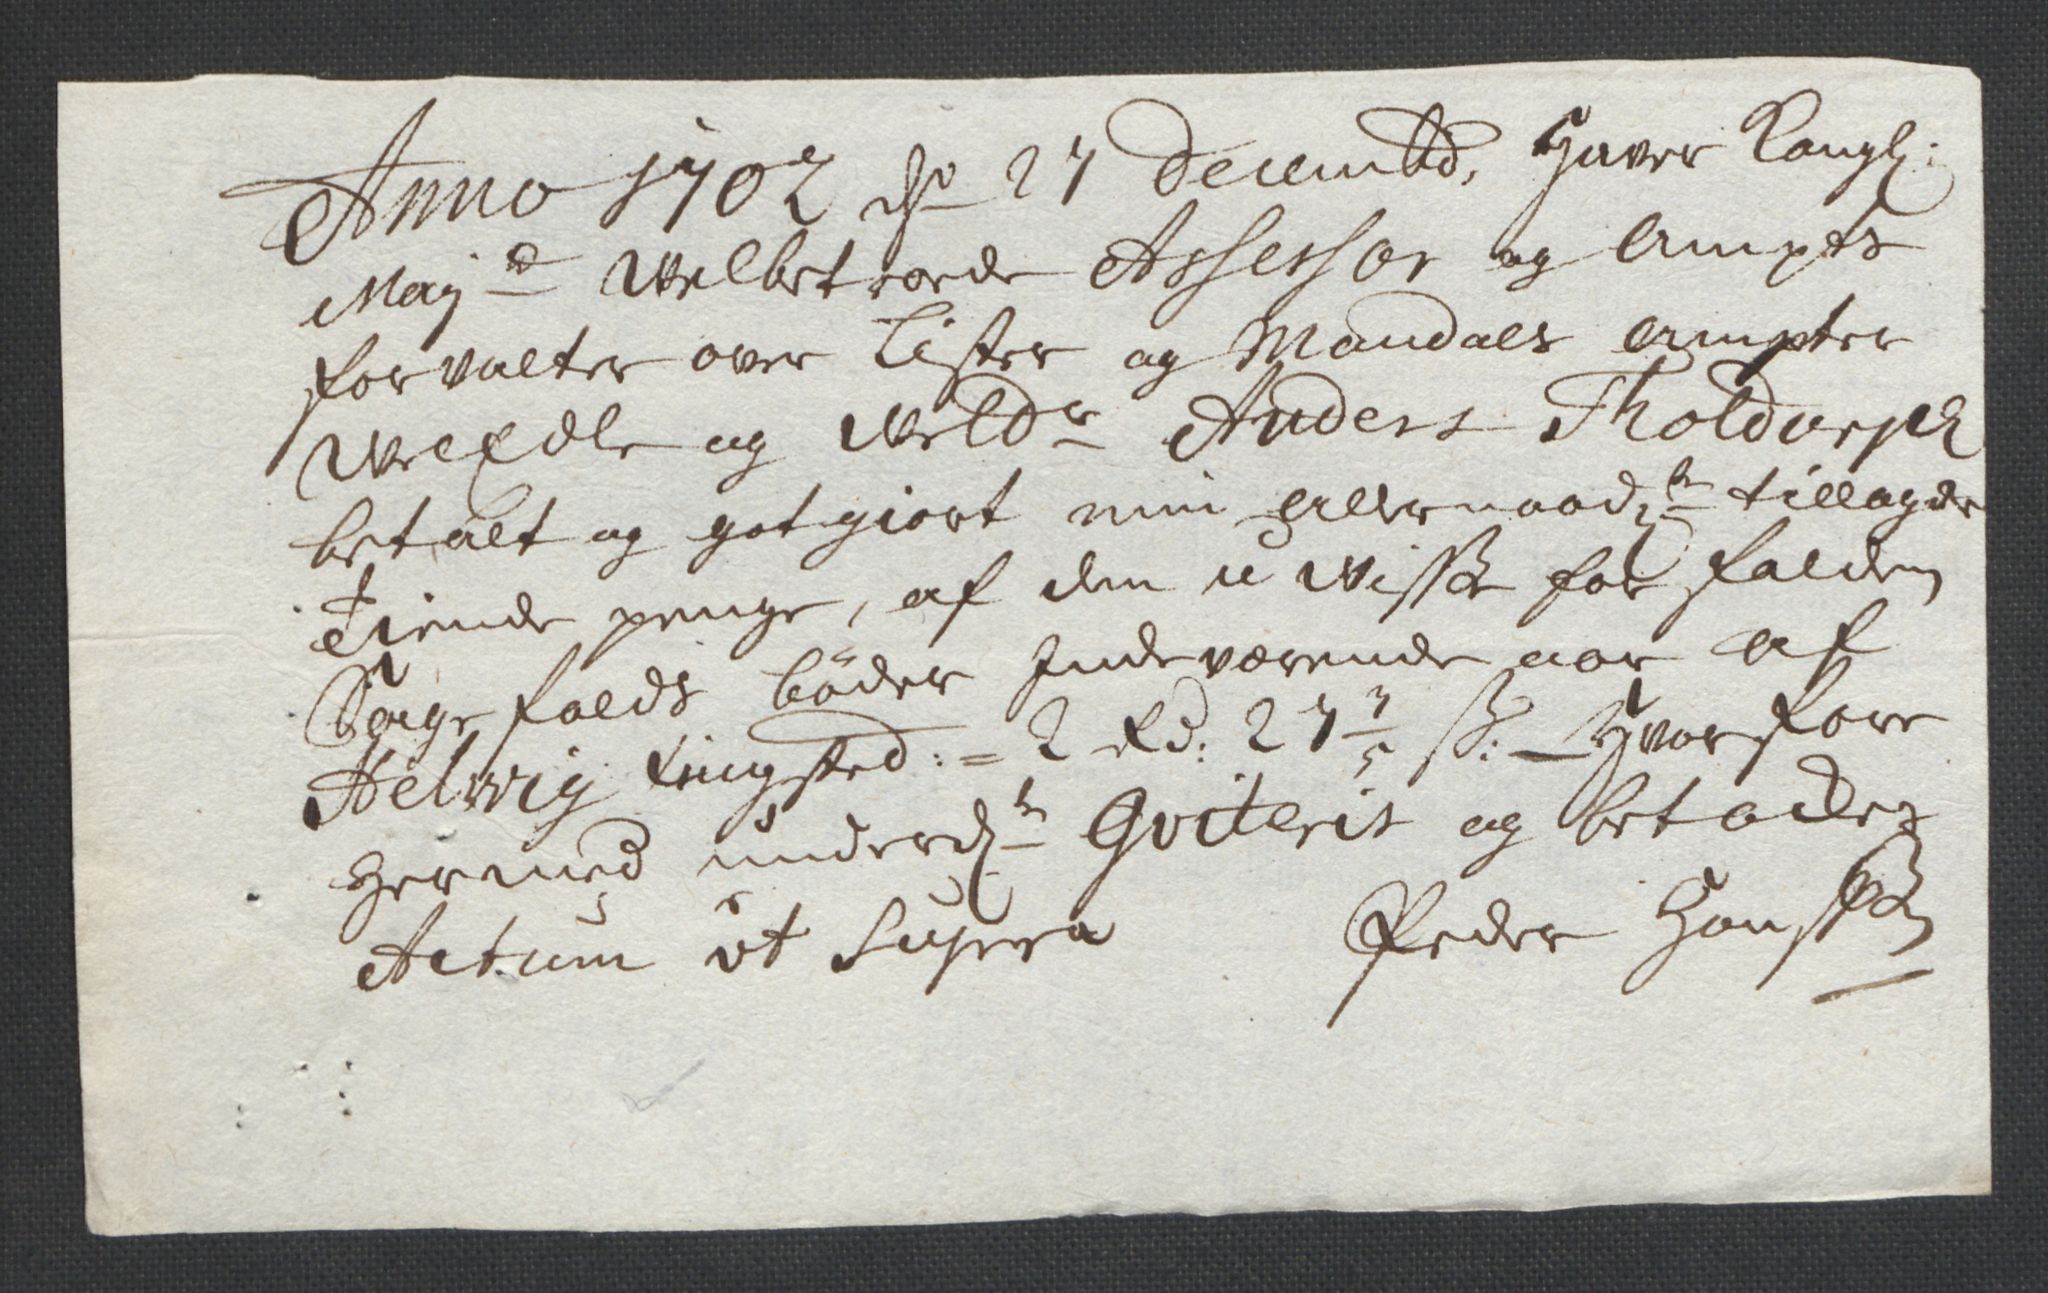 Anno 1702 d 27 Decembr, Haver Kongl:
Mayd Welbetroede Assessor og Ampts
forvalter over Lister og Mandals Ampter
Welædle og Weldr Anders Tholdorph
betalt og gotgiort min Allernaadle tillagde
Tiende penge, af den uwisse for falden
Sagefalds böder Indeværende aar af
Helwig Kingsted := 2 Rd: 27 3/5 ß: Hvorfore
Hermed underdl Qviteris og betackes
Actum üt Supra Peder Hanssøn